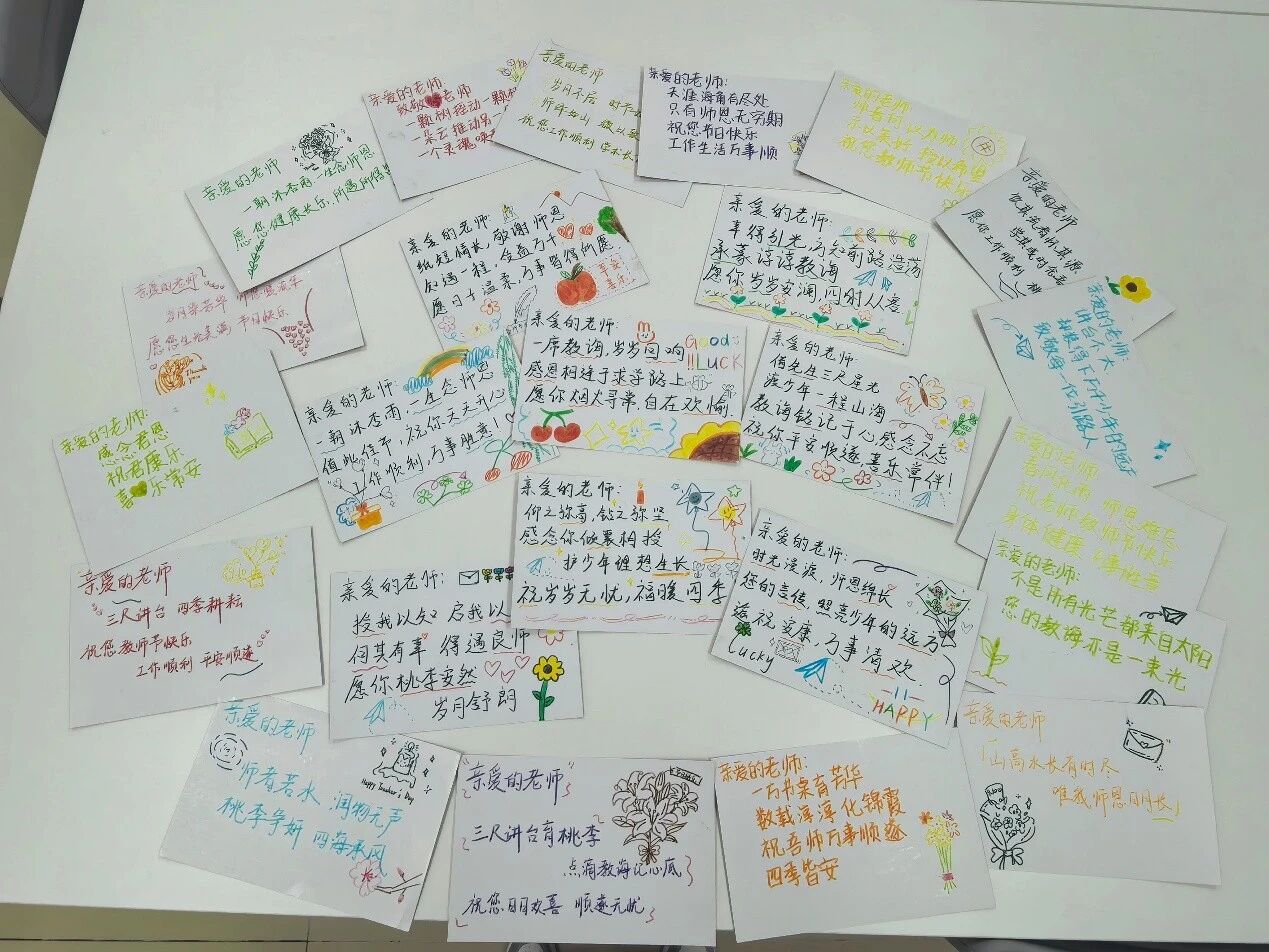 亲爱的老师
一朝沐杏雨 一生念师恩
愿您健康长乐,所愿所得
亲爱的老师
致敬老师
一颗树摇动一颗树
一朵云推动另一
一个灵魂唤
亲爱的老师
岁月不居 时
师泽如山 致以
祝您工作顺利 学术长
亲爱的老师:
天涯海角有尽处
只有师恩无穷期
祝您节日快乐
工作生活万事顺
亲爱的老师
师者何以为师
祝您教师节快乐
亲爱的老师
饮其流者怀其源
学其成时念吾
愿你工作顺利 桃
亲爱的老师:
纸短情长,敬谢师恩
知遇一程,受益万千
愿日子温柔,万事皆得所愿
亲爱的老师:
幸得引光,方知前路浩荡
承蒙谆谆教诲
愿你岁岁安澜,四时从喜
亲爱的老师
岁月染芳华 师恩
愿您生活美满 节日快乐
Thank you
亲爱的老师:
一朝沐杏雨,一生念师恩
值此佳节,祝你天天开心
工作顺利,万事胜意!
亲爱的老师:
一席教诲,岁岁回响
感恩相逢于求学路上
愿你烟火寻常,自在欢愉.
Good
!!Luck
亲爱的老师:
借先生三尺星光
渡少年一程山海
教诲铭记于心感念不忘
祝你平安快遂喜乐常伴!
亲爱的老师:
讲台不大
却撑得下所有少年的远方
致敬每一位引路人
亲爱的老师:
感念君恩
祝君康乐
喜乐常安
亲爱的老师:
仰之弥高,钻之弥坚
感念你倾囊相授
护少年理想生长
祝岁岁无忧,福暖四季
亲爱的老师
春风化雨 师恩难忘
祝老师教师节快乐
身体健康 万事胜意
亲爱的老师:
不是所有光芒都来自太阳
您的教诲亦是一束光
亲爱的老师
三尺讲台 四季耕耘
祝您教师节快乐
工作顺利 平安顺遂
亲爱的老师:
授我以知 启我以
何其有幸 得遇良师
愿你桃李安然
岁月舒朗
亲爱的老师:
时光漫漫,师恩绵长
您的言传,照亮少年的远方
遥祝安康,万事清欢
Lucky
HAPPY
亲爱的老师
师者若水 润物无声
桃李争妍 四海承风
Happy Teacher's Day
亲爱的老师
三尺讲台育桃李
点滴教诲记心底
祝您日日欢喜 顺遂无忧
亲爱的老师:
一方书案育芳华
数载淳淳化锦霞
祝吾师万事顺遂
四季皆安
亲爱的老师
「山高水长有时尽
唯我师恩日月长」